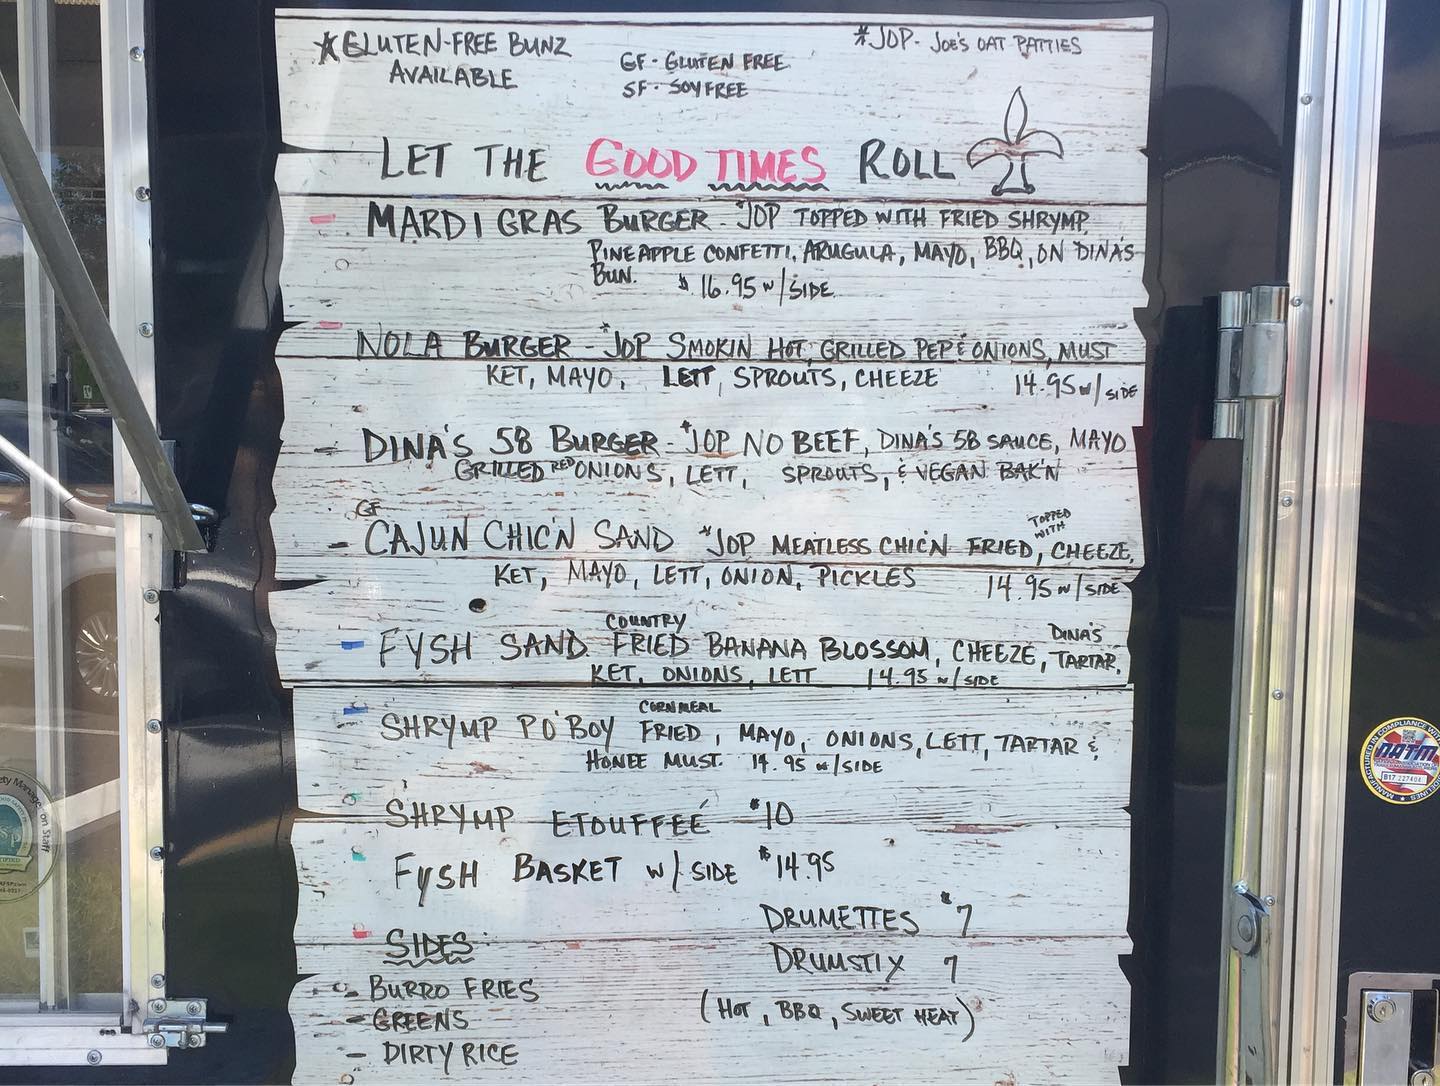 *GLUTEN-FREE BUNZ
AVAILABLE
GF - GLUTEN FREE
SF - SOY FREE
*JOP - JOE'S OAT PATTIES
LET THE GOOD TIMES ROLL
- MARDI GRAS BURGER - *JOP TOPPED WITH FRIED SHRYMP,
PINEAPPLE CONFETTI, ARUGULA, MAYO, BBQ, ON DINA'S
BUN. $16.95 w/SIDE
- NOLA BURGER - *JOP SMOKIN HOT, GRILLED PEP & ONIONS, MUST
KET, MAYO, LETT, SPROUTS, CHEEZE 14.95 w/SIDE
- DINA'S 58 BURGER - *JOP NO BEEF, DINA'S 58 SAUCE, MAYO
GRILLED RED ONIONS, LETT, SPROUTS, & VEGAN BAK'N
GF
- CAJUN CHIC'N SAND *JOP MEATLESS CHIC'N FRIED, TOPPED WITH CHEEZE,
KET, MAYO, LETT, ONION, PICKLES 14.95 w/SIDE
COUNTRY
- FYSH SAND FRIED BANANA BLOSSOM, CHEEZE, DINA'S TARTAR,
KET, ONIONS, LETT 14.95 w/SIDE
CORNMEAL
- SHRYMP PO'BOY FRIED, MAYO, ONIONS, LETT, TARTAR &
HONEE MUST. 14.95 w/SIDE
SHRYMP ETOUFFEÉ $10
FYSH BASKET w/SIDE $14.95
DRUMETTES $7
DRUMSTIX 7
(HOT, BBQ, SWEET HEAT)
SIDES
- BURRO FRIES
- GREENS
- DIRTY RICE
ety Manager on Staff
MANUFACTURED IN COMPLIANCE WITH
NATM
B17 227404